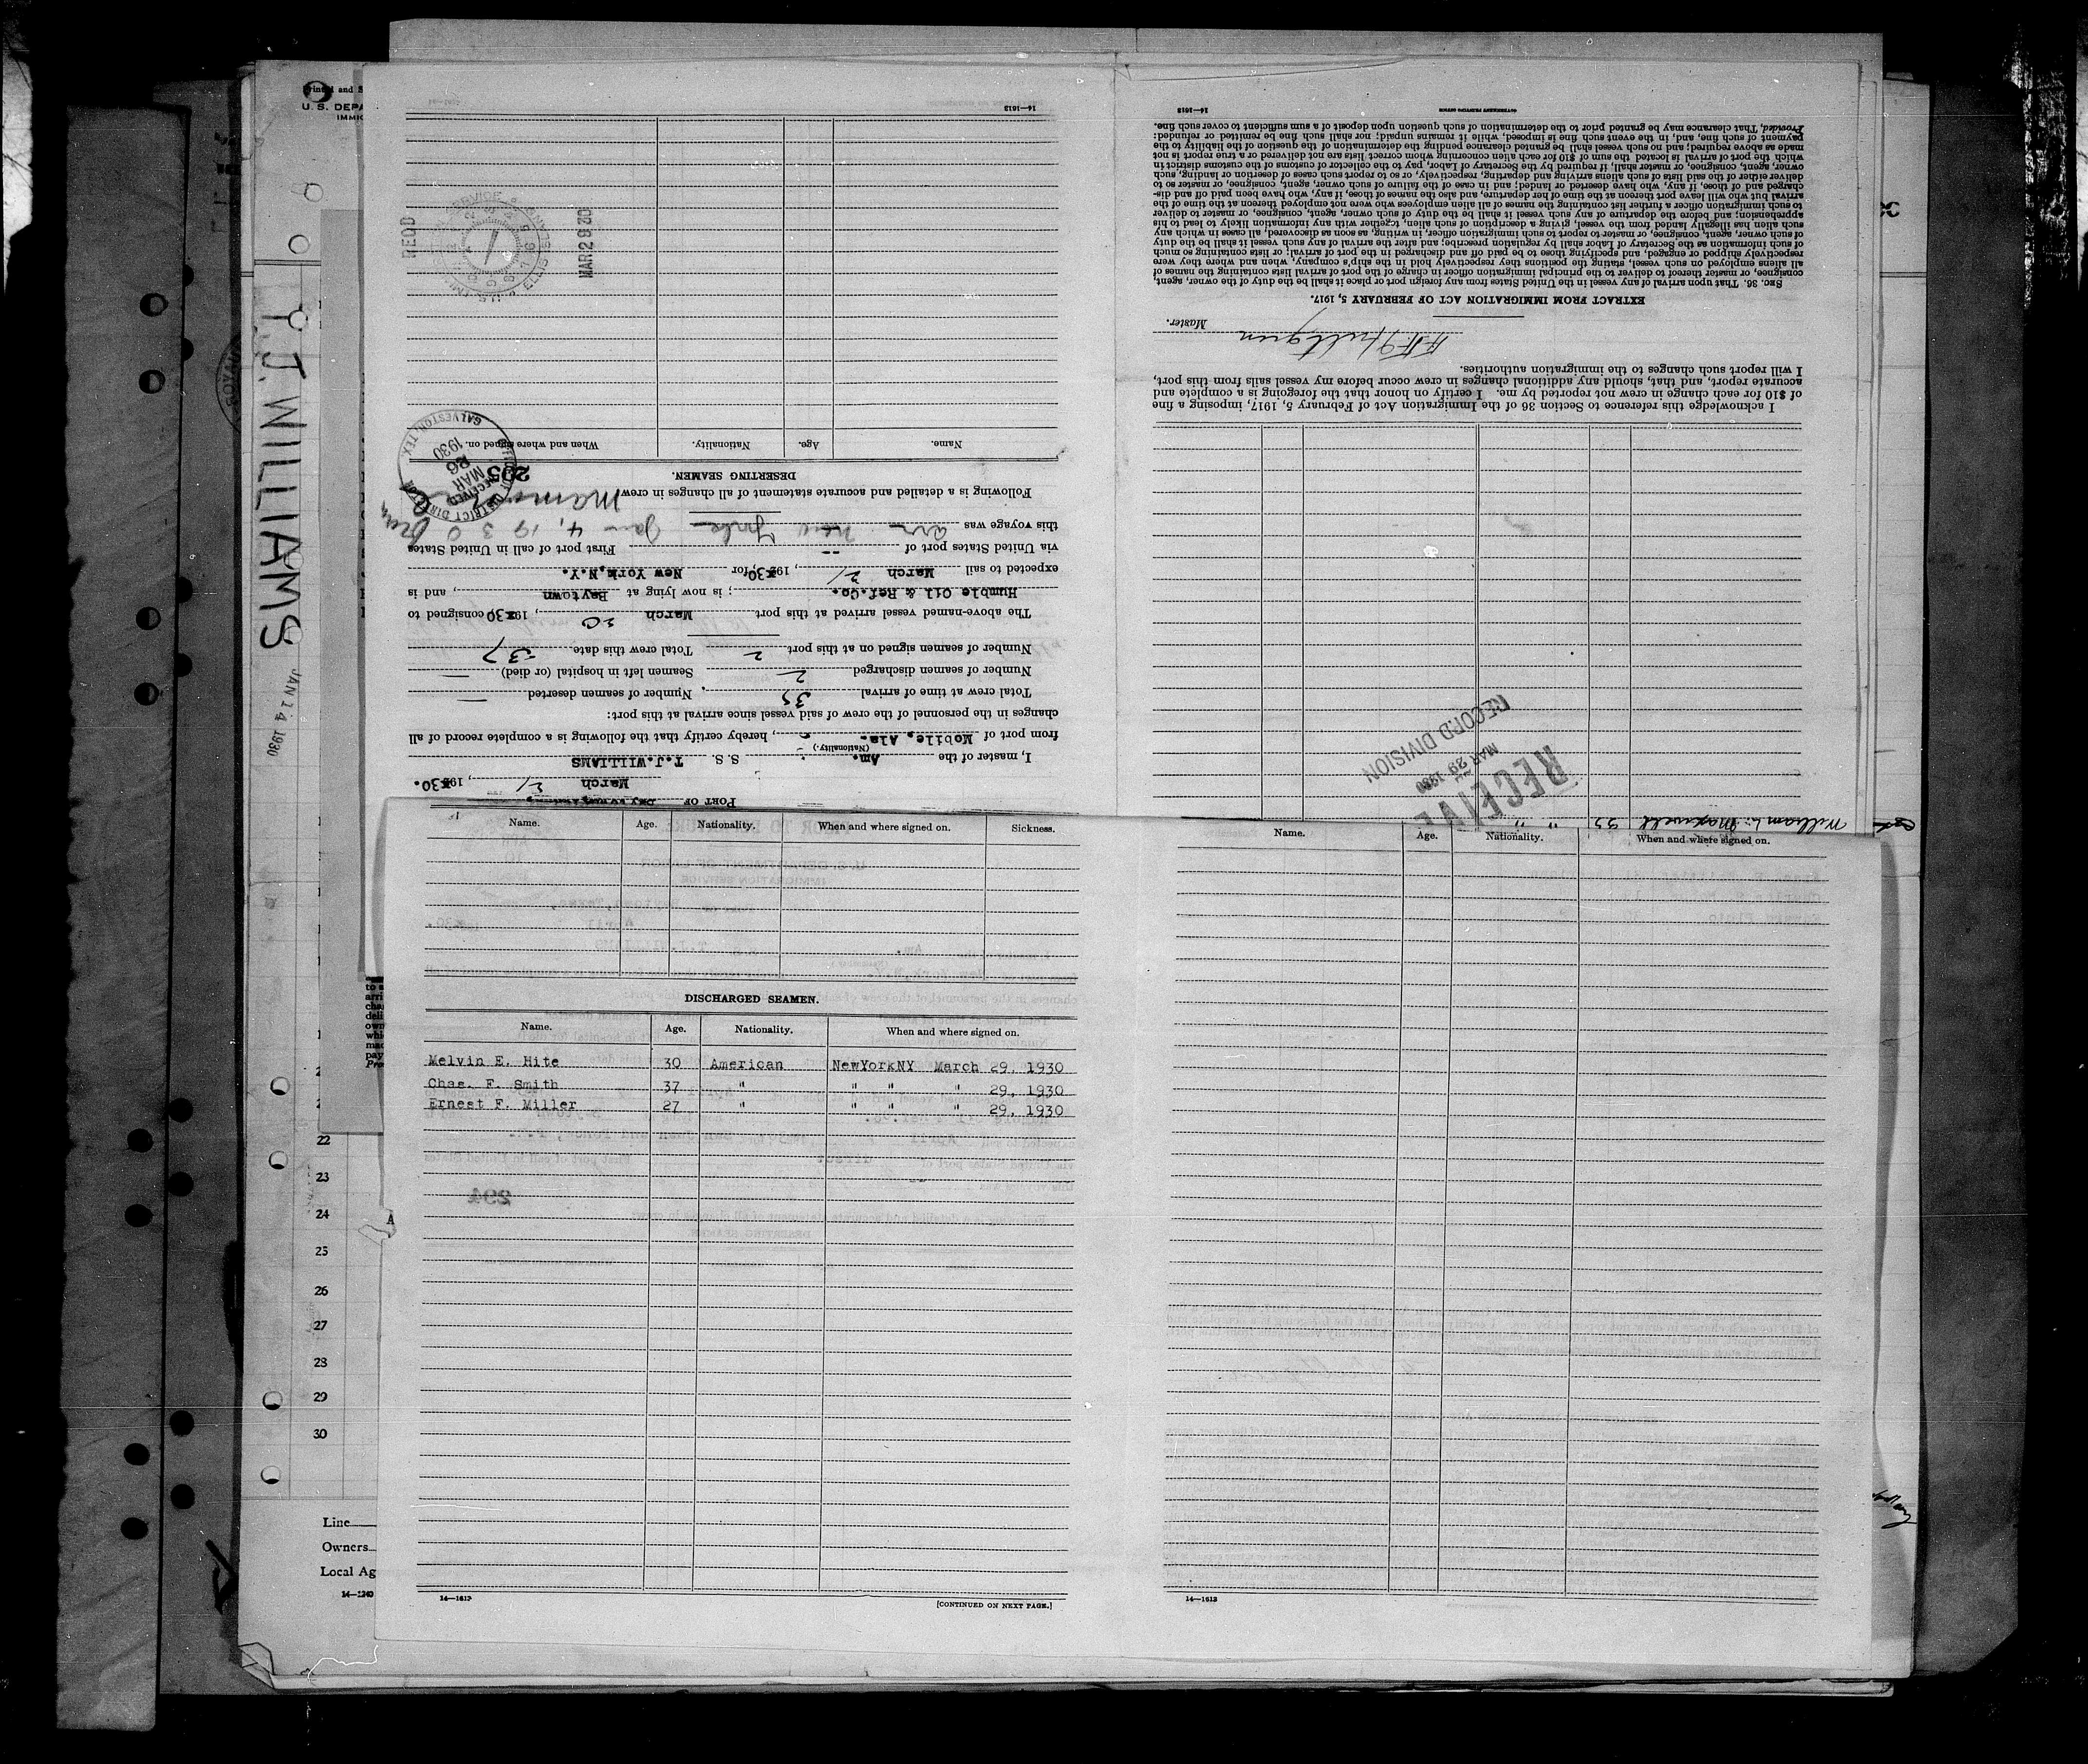 Printed and S
U. S. DEPA
IMMIG
T. J. WILLIAMS
JAN 14 1930
PORT OF
March 21, 1930.
I, master of the Am. S. S. T.J.WILLIAMS
(Nationality.)
from port of Mobile, Ala., hereby certify that the following is a complete record of all
changes in the personnel of the crew of said vessel since arrival at this port:
Total crew at time of arrival Number of seamen deserted —
Number of seamen discharged 2 Seamen left in hospital (or died) —
Number of seamen signed on at this port 2 Total crew this date 37
The above-named vessel arrived at this port March 20, 1930, consigned to
Humble Oil & Ref.Co.; is now lying at Baytown, and is
expected to sail March 21, 1930, for New York,N.Y.
via United States port of -- First port of call in United States
this voyage was arr New York Jan 4, 1930
Following is a detailed and accurate statement of all changes in crew
295
DESERTING SEAMEN.
Name. Age. Nationality. When and where signed on.
DISTRICT DIRECTOR
RECEIVED
MAR
26
1930
GALVESTON, TEX.
MAR 29 30
REDD
14—1613
William L. Maxwell 33 " "
RECEIVE
MAR 29 1930
RECORD DIVISION
I acknowledge this reference to Section 36 of the Immigration Act of February 5, 1917, imposing a fine
of $10 for each change in crew not reported by me. I certify on honor that the foregoing is a complete and
accurate report, and that, should any additional changes in crew occur before my vessel sails from this port,
I will report such changes to the immigration authorities.
Master.
EXTRACT FROM IMMIGRATION ACT OF FEBRUARY 5, 1917.
SEC. 36. That upon arrival of any vessel in the United States from any foreign port or place it shall be the duty of the owner, agent,
consignee, or master thereof to deliver to the principal immigration officer in charge of the port of arrival lists containing the names of
all aliens employed on such vessel, stating the positions they respectively hold in the ship's company, when and where they were
respectively shipped or engaged, and specifying those to be paid off and discharged in the port of arrival; or lists containing so much
of such information as the Secretary of Labor shall by regulation prescribe; and after the arrival of any such vessel it shall be the duty
of such owner, agent, consignee, or master to report to such immigration officer, in writing, as soon as discovered, all cases in which any
such alien has illegally landed from the vessel, giving a description of such alien, together with any information likely to lead to his
apprehension; and before the departure of any such vessel it shall be the duty of such owner, agent, consignee, or master to deliver
to such immigration officer a further list containing the names of all alien employees who were not employed thereon at the time of the
arrival but who will leave port thereon at the time of her departure, and also the names of those, if any, who have been paid off and dis-
charged and of those, if any, who have deserted or landed; and in case of the failure of such owner, agent, consignee, or master so to
deliver either of the said lists of such aliens arriving and departing, respectively, or so to report such cases of desertion or landing, such
owner, agent, consignee, or master shall, if required by the Secretary of Labor, pay to the collector of customs of the customs district in
which the port of arrival is located the sum of $10 for each alien concerning whom correct lists are not delivered or a true report is not
made as above required; and no such vessel shall be granted clearance pending the determination of the question of the liability to the
payment of such fine, and, in the event such fine is imposed, while it remains unpaid; nor shall such fine be remitted or refunded:
Provided, That clearance may be granted prior to the determination of such question upon deposit of a sum sufficient to cover such fine.
14—1613 GOVERNMENT PRINTING OFFICE
Name. Age. Nationality. When and where signed on. Sickness.
DISCHARGED SEAMEN.
Name. Age. Nationality. When and where signed on.
Melvin E. Hite 30 American NewYorkNY March 29, 1930
Chas. F. Smith 37 " " " " 29, 1930
Ernest F. Miller 27 " " " " 29, 1930
14—1613
[CONTINUED ON NEXT PAGE.]
Name. Age. Nationality. When and where signed on.
14—1613
22
23
24
25
26
27
28
29
30
Line
Owners
Local Ag
14—1240